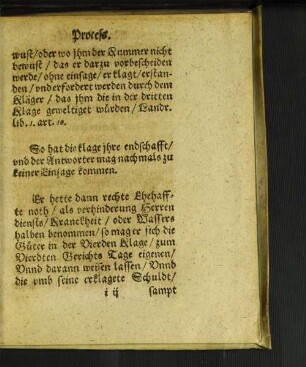 Process.
wust/oder wo jhm der Kummer nicht
bewust / das er darzu vorbescheiden
werde/ohne einsage/er klagt/erstan-
den / vnd erfordert werden durch dem
Kläger / das jhm die in der dritten
Klage geweltiget würden / Landr.
lib. 1. art.
So hat die klage jhre endschafft/
vnd der Antworter mag nachmals zu
keiner Einsage kommen.
Er hette dann rechte Ehehaff-
te noth / als verhinderung Herren
dienste/ Kranckheit / oder Wassers
halben benommen/so mag er sich die
Güter in der Vierden Klage / zum
Vierdten Gerichts Tage eigenen/
Vnnd darann weisen lassen / Vnnd
die vmb seine erklagete Schuldt/
i ij sampt